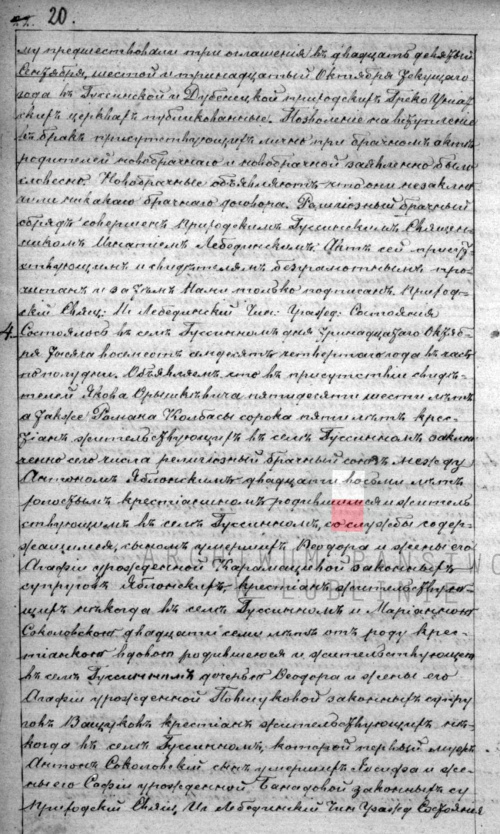 20.
му предшествовали три оглашения въ двадцать девятый
Сентября, шестой и тринадцатый Октября текущаго
года въ Гуссинской и Дубенецкой приходскихъ Греко Унiат-
скихъ церквахъ публикованные. Позволенiе на вступленiе
въ бракъ присутствующихъ лично при брачномъ актѣ
родителей новобрачнаго и новобрачной заявленно было
словесно. Новобрачные объявляютъ что они незаклю-
чили никакаго брачнаго договора. Религiозный брачный
обрядъ совершенъ Приходскимъ Гуссинскимъ Священ-
никомъ Игнатiемъ Лебединскимъ. Актъ сей присут-
ствующимъ и свидѣтелямъ безграмотнымъ про-
читанъ и затѣмъ Нами только подписанъ. Приход-
скiй Свящ: И Лебединскiй Чин: Гражд: Состоянiя
4. Состоялось въ селѣ Гуссинномъ дня тринадцатаго Октяб-
ря тысяча восемьсотъ четвертаго года въ часъ
пополудни. Объявляемъ что въ присутствiи свидѣ-
телей Якова Орышкевича пятидесяти шести лѣтъ
а также Романа Колбасы сорока пяти лѣтъ крес-
тiанъ жительствующихъ въ селѣ Гуссинномъ заклю-
ченно сего числа религiозный брачный союзъ между
Антономъ Яблонскимъ двадцати восьми лѣтъ
холостымъ крестiаниномъ родившимся и житель-
ствующимъ въ селѣ Гуссинномъ, со службы содер-
жащимся, сыномъ умершихъ Ѳеодора и жены его
Агафiи урожденной Карамацковой законныхъ
супруговъ Яблонскихъ крестiанъ жительствую-
щихъ нѣкогда въ селѣ Гуссинномъ и Марiанною
Соколовскою двадцати семи лѣтъ отъ роду крес-
тiанкою вдовою родившеюся и жительствующею
въ селѣ Гуссинномъ дочерью Ѳеодора и жены его
Агафiи урожденной Павлуковой законныхъ супру-
говъ Ващуковъ крестiанъ жительствующихъ нѣ-
когда въ селѣ Гуссинномъ, которой первый мужъ
Антонъ Соколовскiй сынъ умершихъ Iосифа и же-
ны его Софiи урожденной Банадовой законныхъ су
Приходскiй Свящ. Иг Лебединскiй Чин Гражд Состоянiя